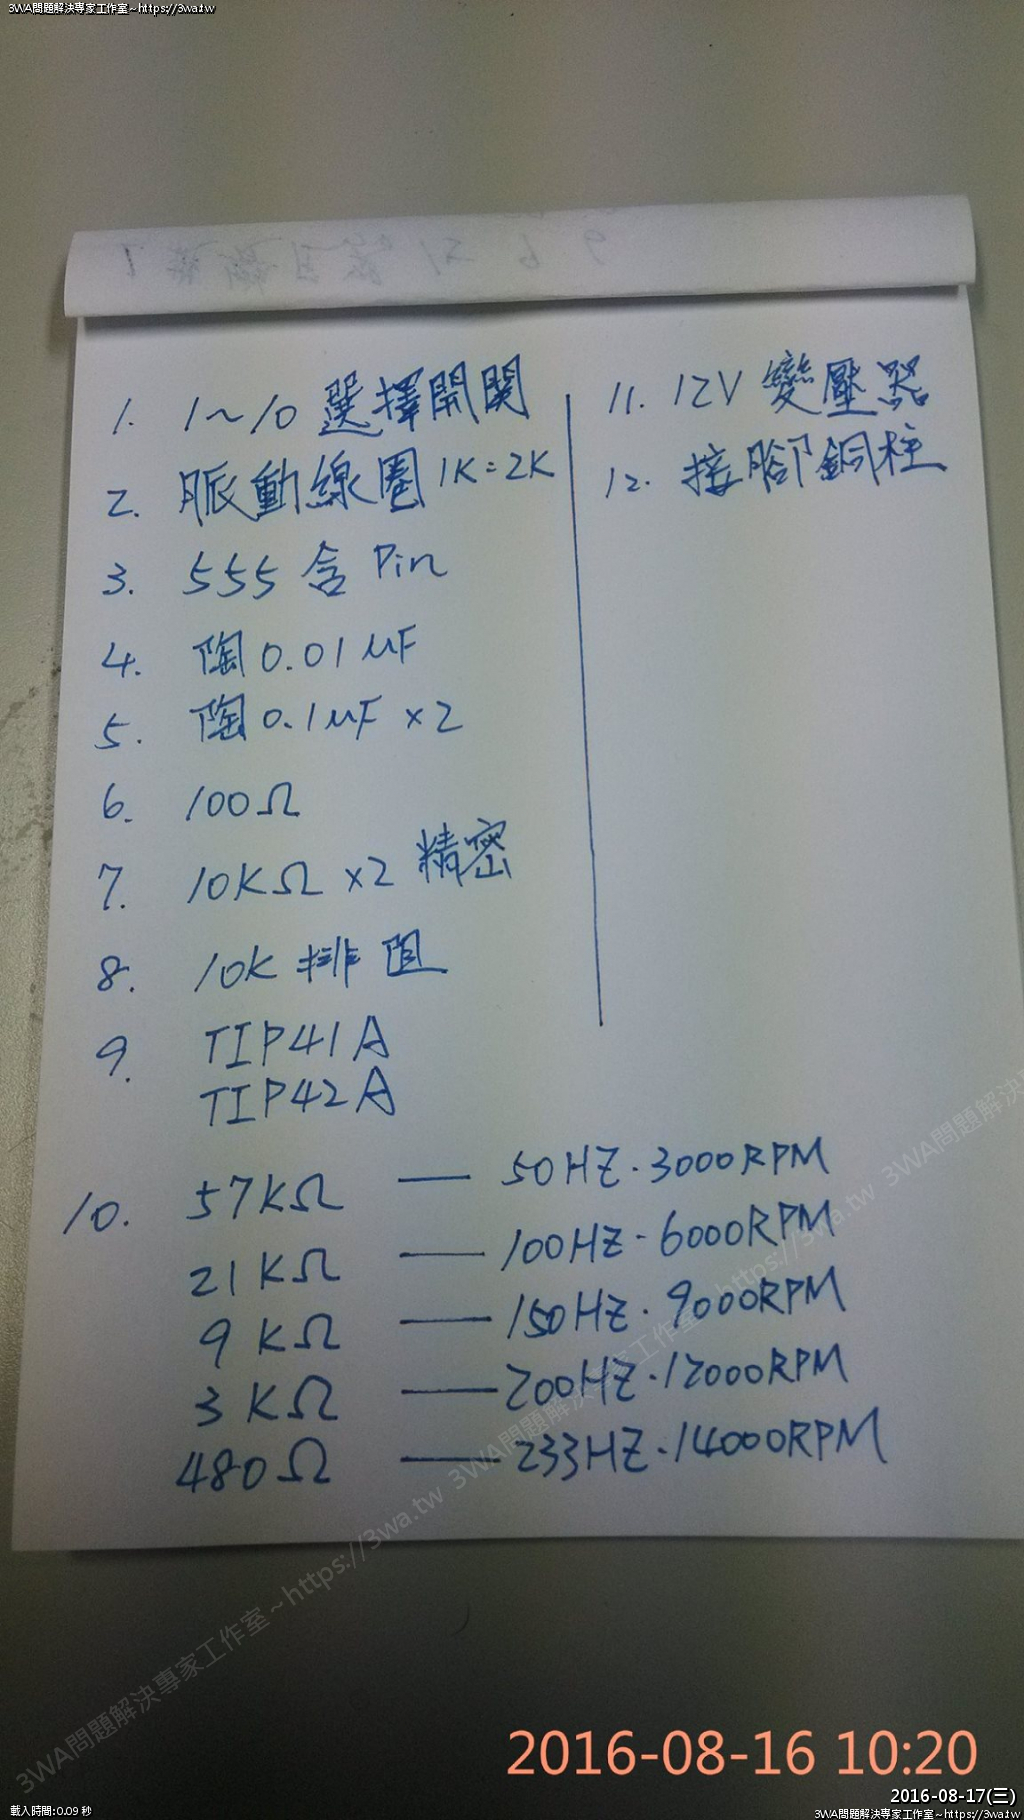 3WA問題解決專家工作室~https://3wa.tw
1. 1~10 選擇開関
2. 脈動線圈 1K=2K
3. 555 含 Pin
4. 陶 0.01 μF
5. 陶 0.1 μF ×2
6. 100Ω
7. 10KΩ ×2 精密
8. 10K 排阻
9. TIP41A
TIP42A
10. 57KΩ — 50HZ.3000RPM
21KΩ — 100HZ-6000RPM
9KΩ — 150HZ.9000RPM
3KΩ — 200HZ.12000RPM
480Ω — 233HZ.14000RPM
11. 12V 變壓器
12. 接腳銅柱
3WA問題解決專家工作室~https://3wa.tw 3WA問題解決專家工作室~https://3wa.tw 3WA問題解決
2016-08-16 10:20
2016-08-17(三)
載入時間:0.09 秒
3WA問題解決專家工作室~https://3wa.tw